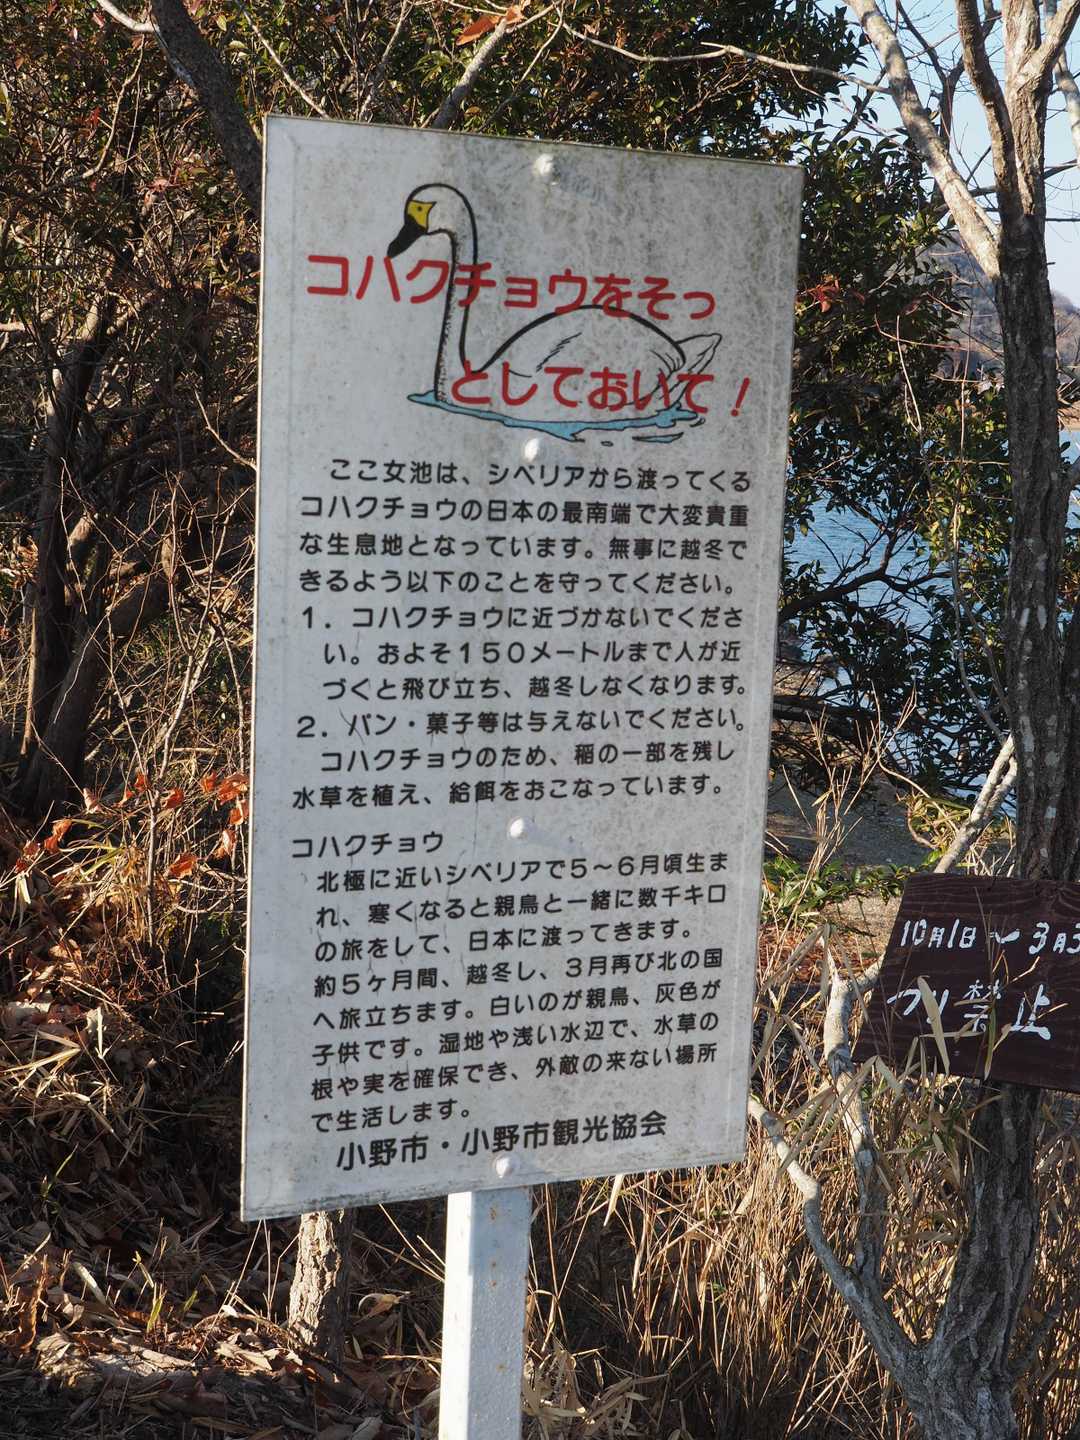 コハクチョウをそっ
としておいて！
ここ女池は、シベリアから渡ってくる
コハクチョウの日本の最南端で大変貴重
な生息地となっています。無事に越冬で
きるよう以下のことを守ってください。
1．コハクチョウに近づかないでくださ
い。およそ150メートルまで人が近
づくと飛び立ち、越冬しなくなります。
2．パン・菓子等は与えないでください。
コハクチョウのため、稲の一部を残し
水草を植え、給餌をおこなっています。
コハクチョウ
北極に近いシベリアで5〜6月頃生ま
れ、寒くなると親鳥と一緒に数千キロ
の旅をして、日本に渡ってきます。
約5ヶ月間、越冬し、3月再び北の国
へ旅立ちます。白いのが親鳥、灰色が
子供です。湿地や浅い水辺で、水草の
根や実を確保でき、外敵の来ない場所
で生活します。
小野市・小野市観光協会
10月1日〜3月3
ツリ禁止